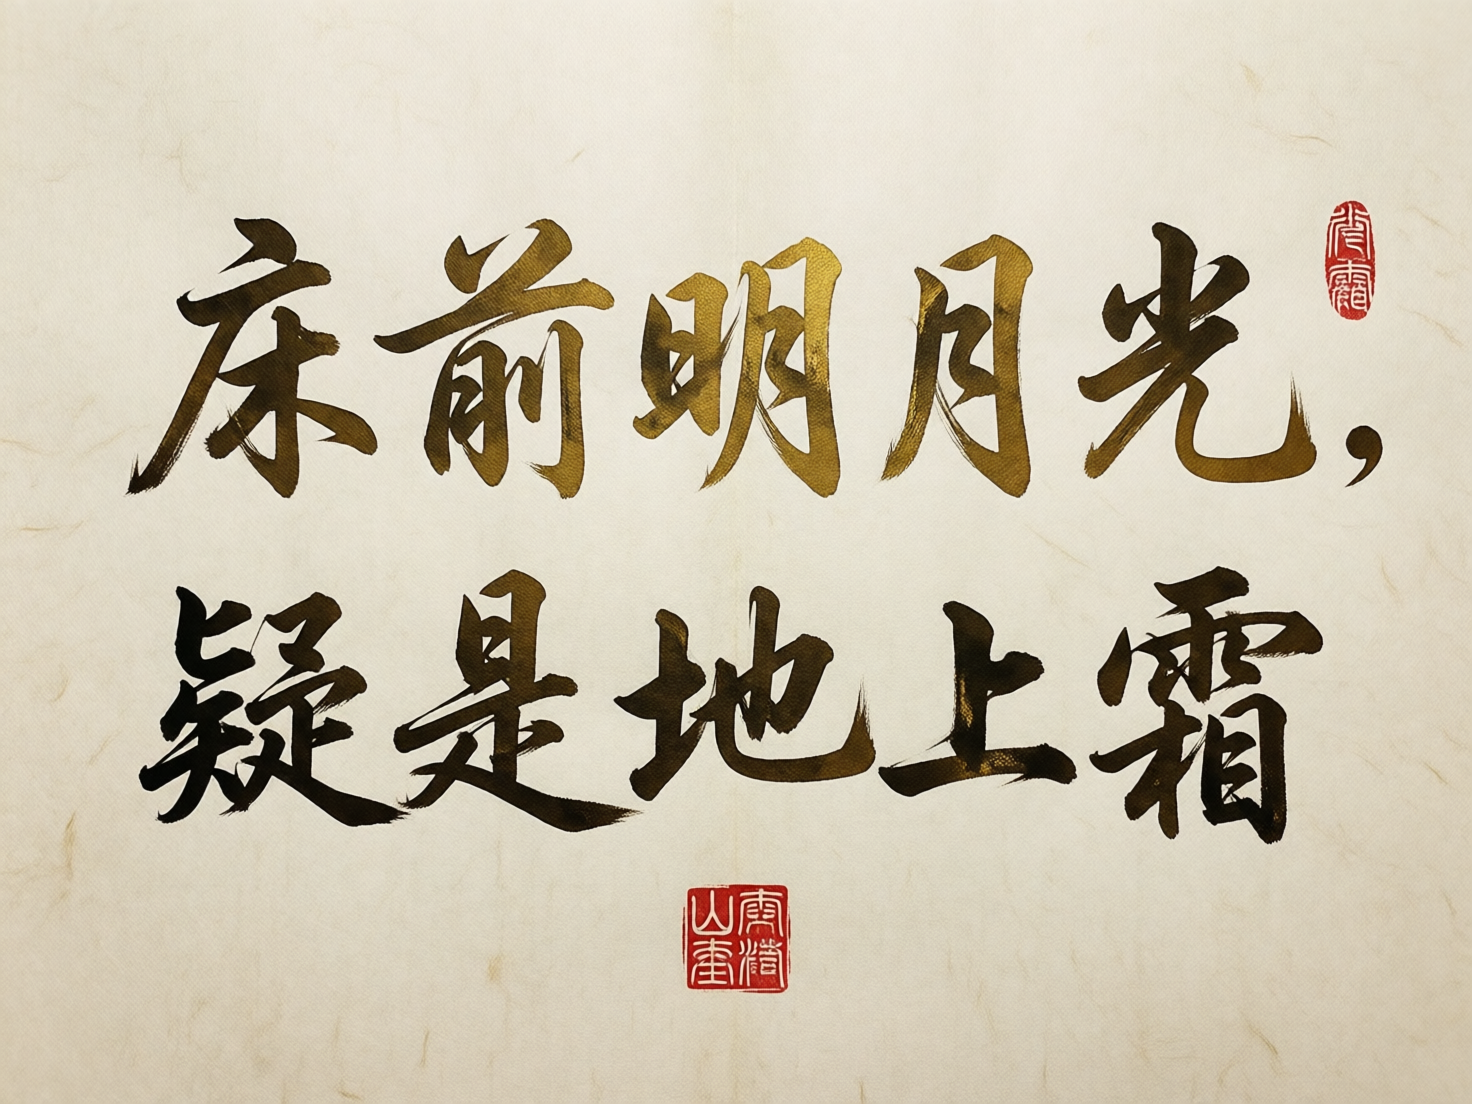 床前明月光，
疑是地上霜